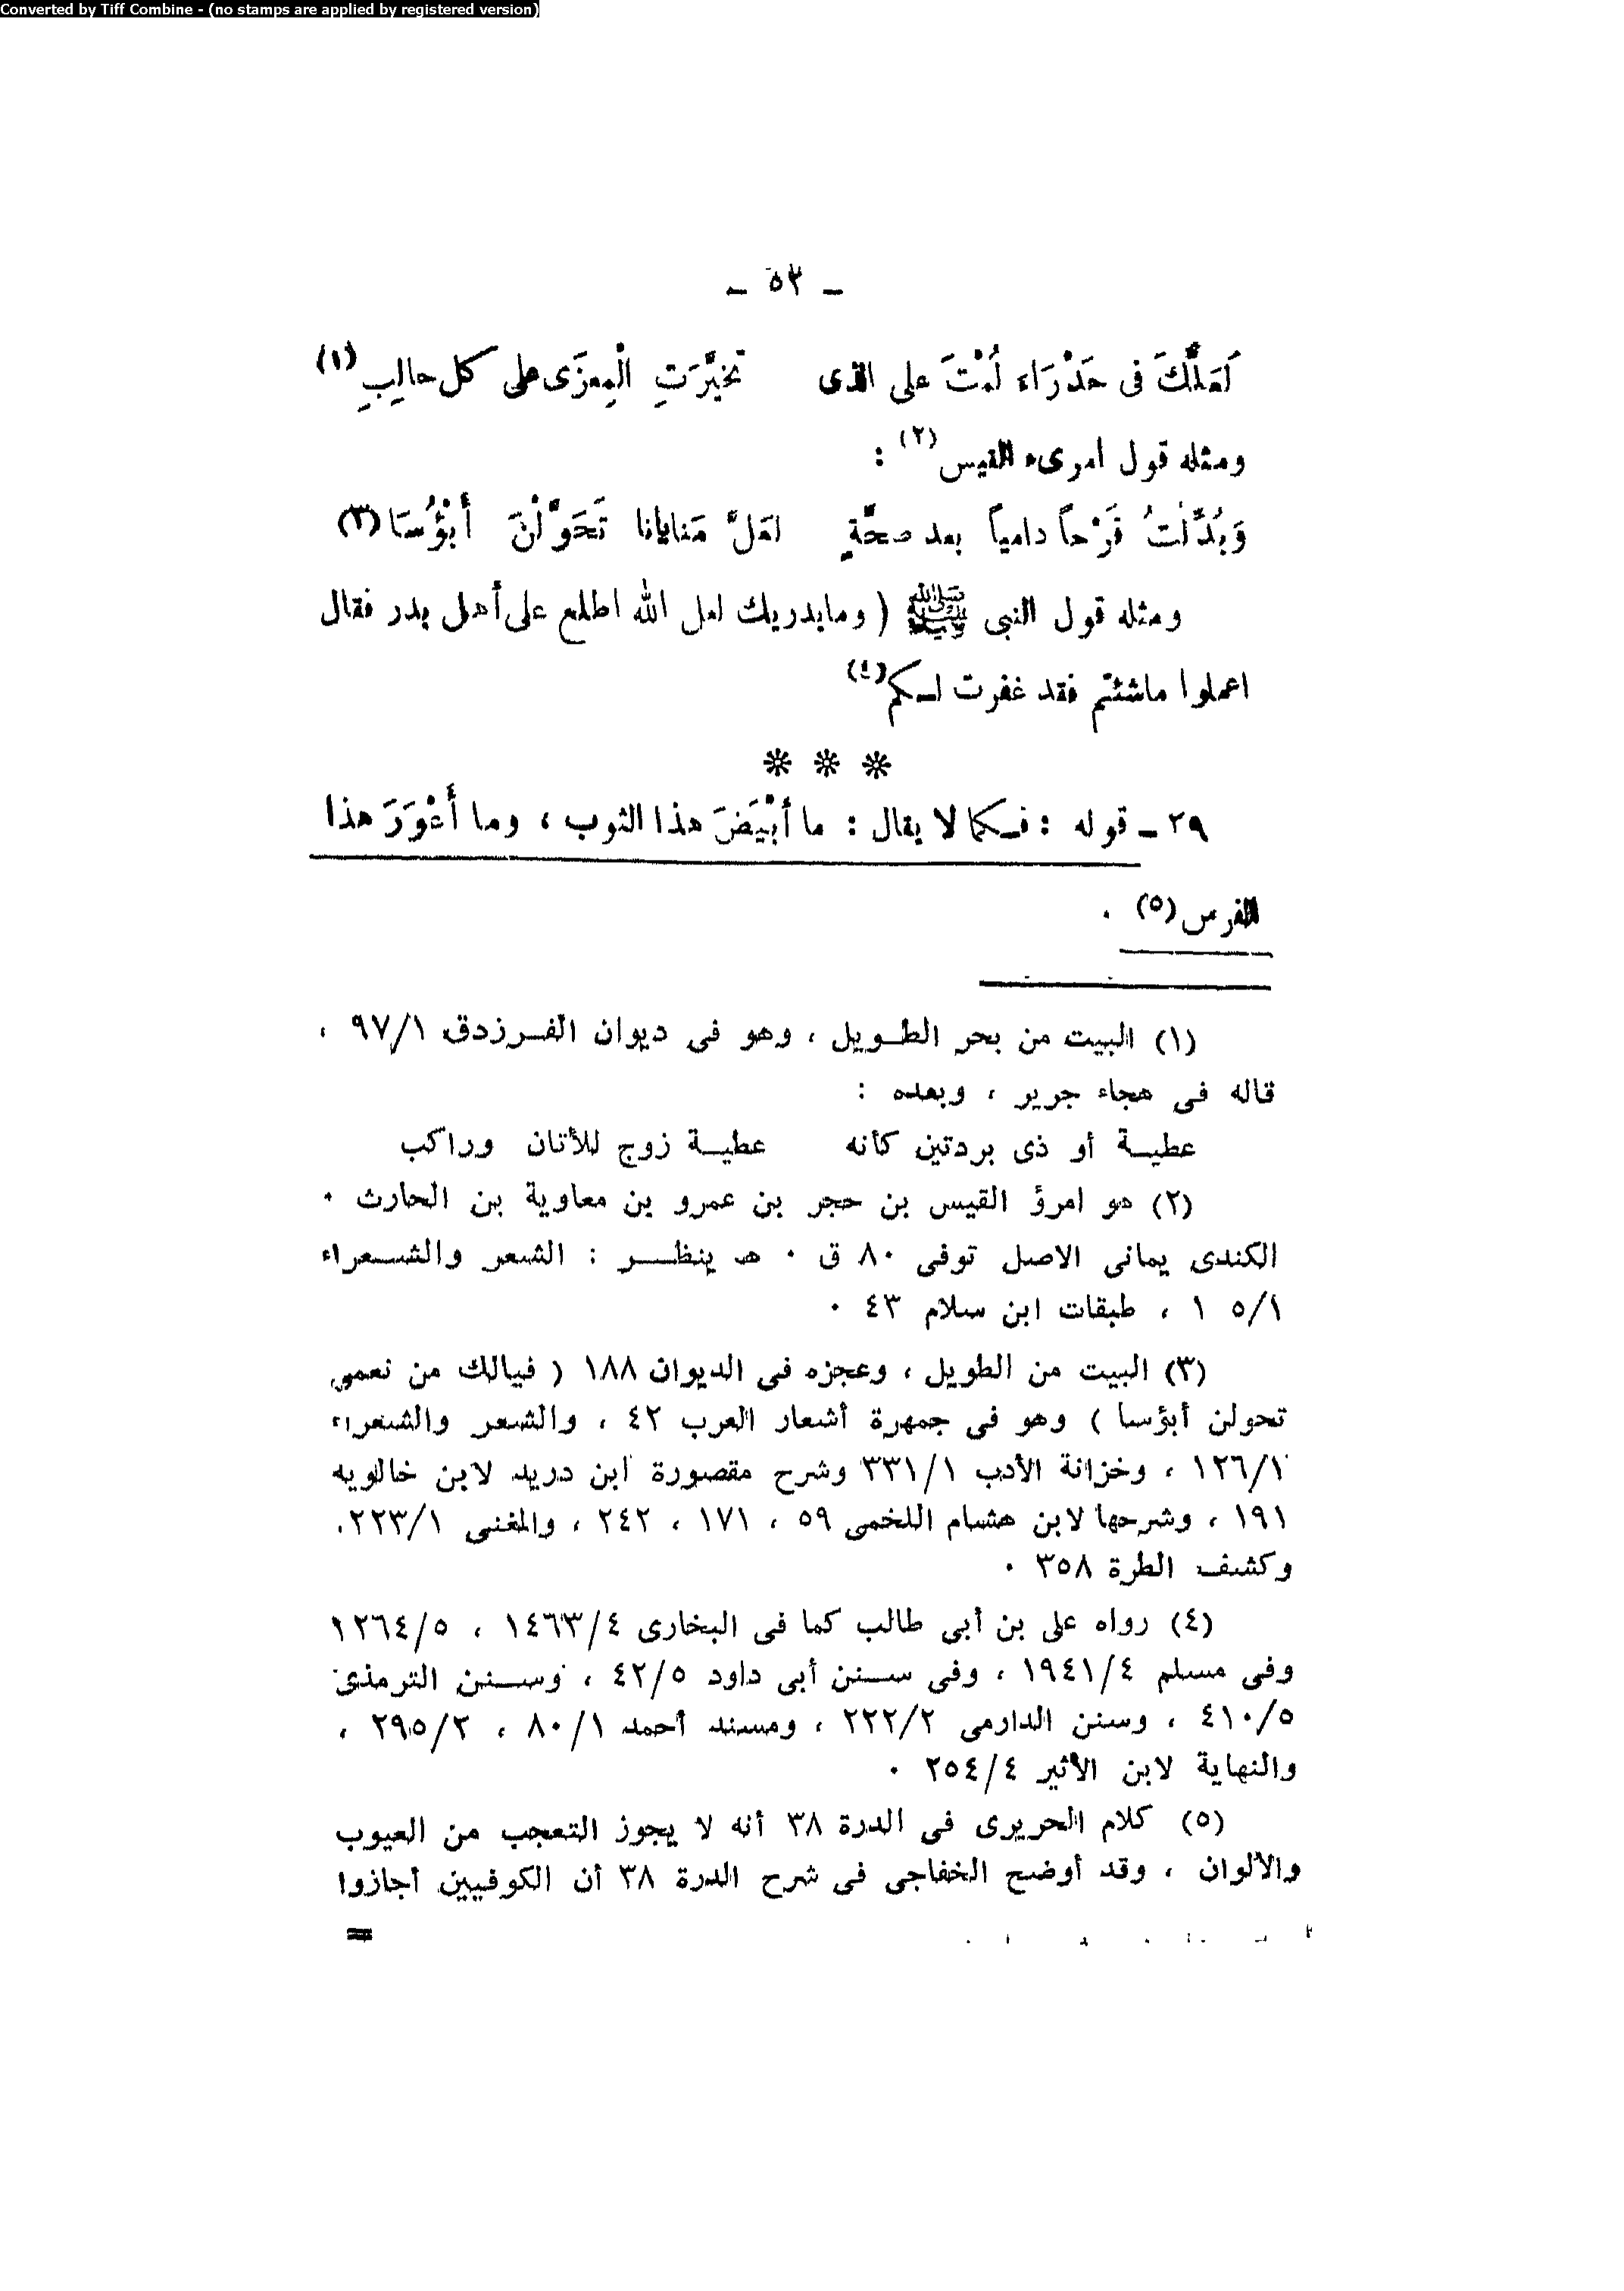 Converted by Tiff Combine - (no stamps are applied by registered version)
ـ ٥٣ ـ
لَعَلَّكَ فى حَدْرَاءَ لُمْتَ على الذى تخيَّرَتِ الْمِعزَى على كل حالِبِ (١)
ومثله قول امرىء القيس (٢) :
وَبُدِّلْتُ قَرْحاً دامياً بعد صحَّةٍ لعَلَّ مَنايانا تَحَوَّلْنَ أَبْؤُسَا (٣)
ومثله قول النبى ﷺ ( وما يدريك لعل الله اطلع على أهل بدر فقال
اعملوا ماشئتم فقد غفرت لـكم (٤)
* * *
٢٩ ـ قوله : فـكما لا يقال : ما أَبْيَضَ هذا الثوب ، وما أَعْوَرَ هذا
الفرس (٥) .
(١) البيت من بحر الطـويل ، وهو فى ديوان الفـرزدق ٩٧/١ ،
قاله فى هجاء جرير ، وبعده :
عطيـة أو ذى بردتين كأنه عطيـة زوج للأتان وراكب
(٢) هو امرؤ القيس بن حجر بن عمرو بن معاوية بن الحارث .
الكندى يمانى الاصل توفى ٨٠ ق . هـ ينظــر : الشعر والشـعراء
٥/١ ١ ، طبقات ابن سلام ٤٣ .
(٣) البيت من الطويل ، وعجزه فى الديوان ١٨٨ ( فيالك من نعمى
تحولن أبؤسا ) وهو فى جمهرة أشعار العرب ٤٢ ، والشعر والشعراء
١٢٦/١ ، وخزانة الأدب ٣٣١/١ وشرح مقصورة ابن دريد لابن خالويه
١٩١ ، وشرحها لابن هشام اللخمى ٥٩ ، ١٧١ ، ٢٤٢ ، والمغنى ٢٢٣/١ .
وكشف الطرة ٣٥٨ .
(٤) رواه على بن أبى طالب كما فى البخارى ١٤٦٣/٤ ، ١٢٦٤/٥
وفى مسلم ١٩٤١/٤ ، وفى سـنن أبى داود ٤٢/٥ ، وسـنن الترمذى
٤١٠/٥ ، وسنن الدارمى ٢٢٢/٢ ، ومسند أحمد ٨٠/١ ، ٢٩٥/٢ ،
والنهاية لابن الأثير ٢٥٤/٤ .
(٥) كلام الحريرى فى الدرة ٣٨ أنه لا يجوز التعجب من العيوب
والألوان ، وقد أوضح الخفاجى فى شرح الدرة ٣٨ أن الكوفيين أجازوا
=